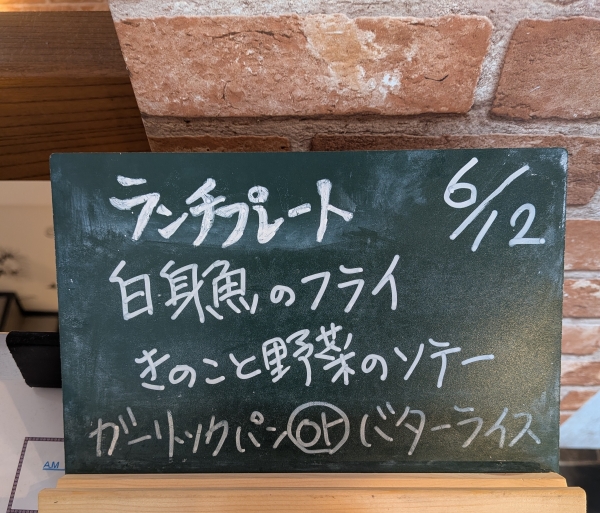 ランチプレート 6/12
白身魚のフライ
きのこと野菜のソテー
ガーリックパン or バターライス
AM